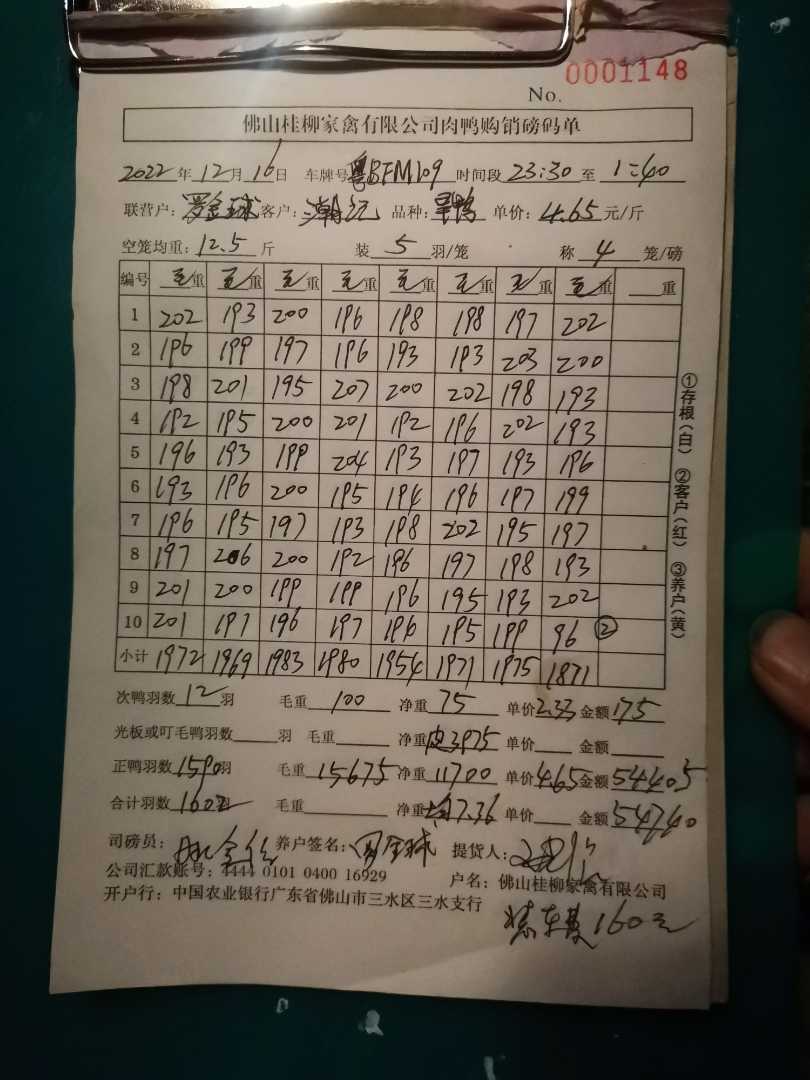 No. 0001148
佛山桂柳家禽有限公司肉鸭购销磅码单
2022年12月16日 车牌号粤BFM109 时间段23:30至1:40
联营户:罗金球 客户: 品种: 单价:4.65元/斤
空笼均重:12.5斤 装5羽/笼 称4笼/磅
编号 毛重 毛重 毛重 毛重 毛重 毛重 毛重 毛重 重
1 202 193 200 196 198 198 197 202
2 196 199 197 196 193 193 203 200
3 198 201 195 207 200 202 198 193
4 192 195 200 201 192 196 202 193
5 196 193 199 204 193 197 193 196
6 193 196 200 195 194 196 197 199
7 196 195 197 193 198 202 195 197
8 197 206 200 192 196 197 198 193
9 201 200 199 199 196 195 193 202
10 201 197 196 197 196 195 199 96 ②
小计 1972 1969 1983 1980 1954 1971 1975 1871
次鸭羽数12羽 毛重100 净重75 单价2.33金额175
光板或叮毛鸭羽数羽 毛重 净重皮3975 单价 金额
正鸭羽数1590羽 毛重15675净重11700 单价4.65金额54405
合计羽数1602羽 毛重 净重均7.36 单价 金额54740
司磅员: 养户签名:罗金球 提货人:
公司汇款账号:4444 0101 0400 16929 户名:佛山桂柳家禽有限公司
开户行:中国农业银行广东省佛山市三水区三水支行
160元
①存根(白) ②客户(红) ③养户(黄)